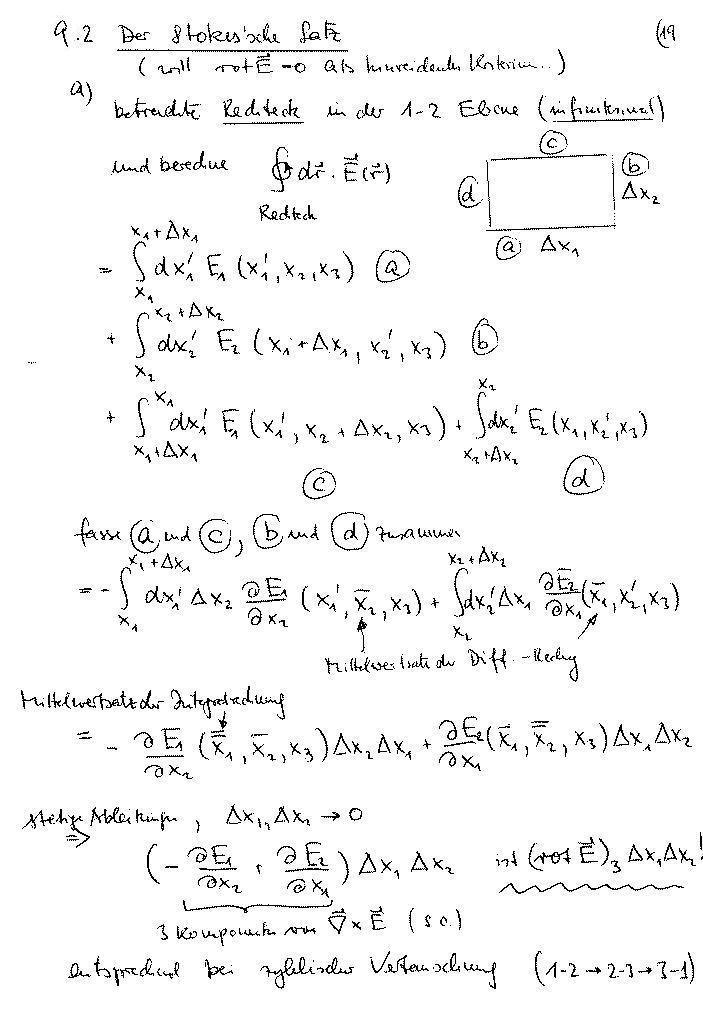 9.2 Der Stokes'sche Satz (19
( will rot E⃗ = 0 als hinreichendes Kriterium..)
a) betrachte Rechteck in der 1-2 Ebene (infinitesimal)
und berechne ∮ dr⃗ · E⃗(r⃗)
Rechteck
c
d b Δx₂
a Δx₁
= ∫_{x₁}^{x₁+Δx₁} dx₁' E₁ (x₁', x₂, x₃) a
+ ∫_{x₂}^{x₂+Δx₂} dx₂' E₂ (x₁+Δx₁, x₂', x₃) b
+ ∫_{x₁+Δx₁}^{x₁} dx₁' E₁ (x₁', x₂+Δx₂, x₃) + ∫_{x₂+Δx₂}^{x₂} dx₂' E₂(x₁, x₂', x₃)
c d
fasse a und c, b und d zusammen
= - ∫_{x₁}^{x₁+Δx₁} dx₁' Δx₂ ∂E₁/∂x₂ (x₁', x̄₂, x₃) + ∫_{x₂}^{x₂+Δx₂} dx₂' Δx₁ ∂E₂/∂x₁ (x̄₁, x₂', x₃)
Mittelwertsatz der Diff.-Rechng
Mittelwertsatz der Integralrechnung
= - ∂E₁/∂x₂ (x̿₁, x̄₂, x₃) Δx₂ Δx₁ + ∂E₂/∂x₁ (x̄₁, x̿₂, x₃) Δx₁ Δx₂
stetige Ableitungen, Δx₁, Δx₂ → 0
⇒ (- ∂E₁/∂x₂ + ∂E₂/∂x₁) Δx₁ Δx₂ ist (rot E⃗)₃ Δx₁Δx₂!
3 Komponente von ∇⃗ × E⃗ (s.o.)
entsprechend bei zyklischer Vertauschung (1-2 → 2-3 → 3-1)